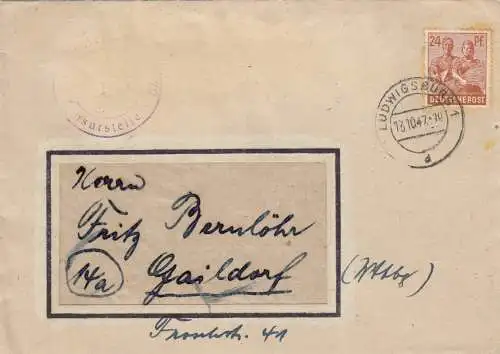 24 Pf
DEUTSCHE POST
LUDWIGSBURG 1
13.10.47
d
Herrn
Fritz Bernlöhr
14a
Gaildorf (Wttbg)
41